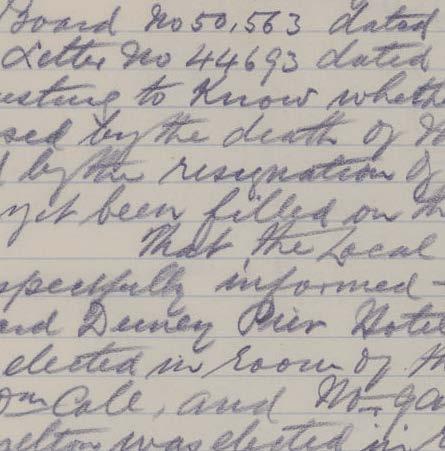 Board No 50,563 dated
Letter No 44693 dated
esting to Know wheth
sed by the death of
d by the resignation of
yet been filled on th
That the Local
spectfully informed -
ard Deeney Pier Hote
elected in room of th
Wm Cole, and
elton was elected in